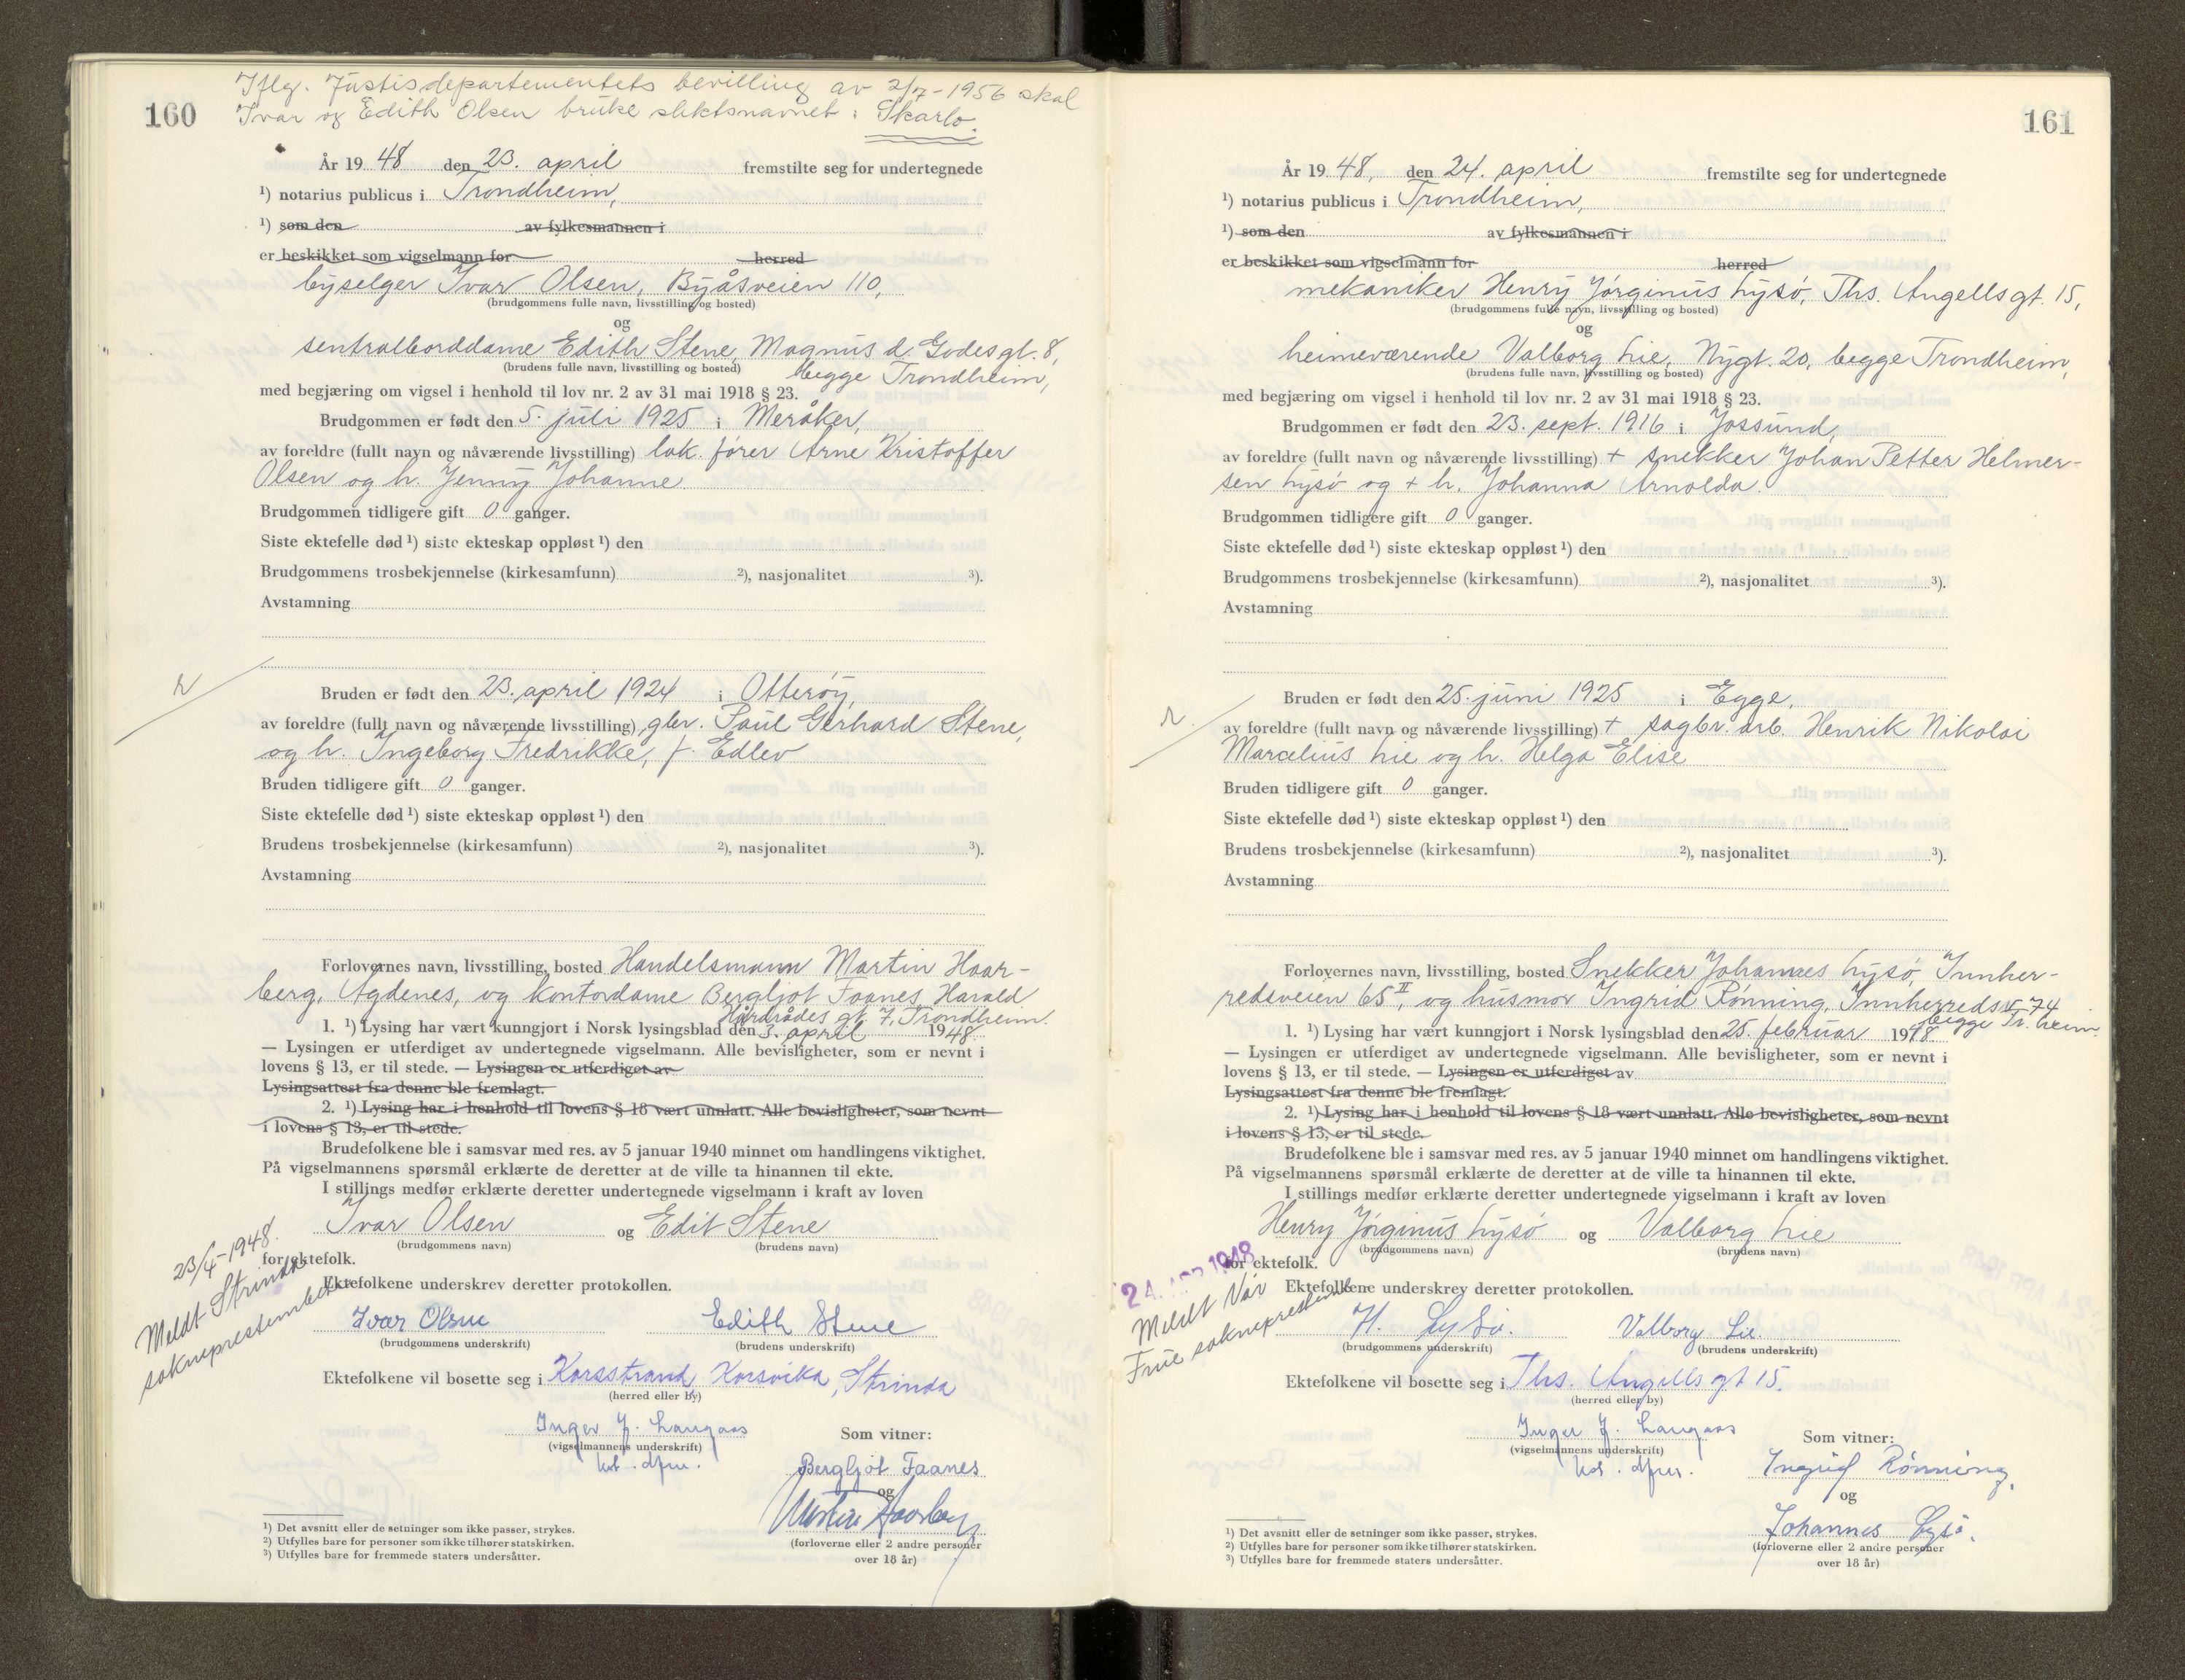 Iflg. Justisdepartementets bevilling av 2/7-1956 skal
Ivar og Edith Olsen bruke slektsnavnet: Skarlo.
160
År 1948 den 23. april fremstilte seg for undertegnede
¹) notarius publicus i Trondheim,
¹) som den av fylkesmannen i
er beskikket som vigselmann for herred
byselger Ivar Olsen, Byåsveien 110,
(brudgommens fulle navn, livsstilling og bosted)
og
sentralborddame Edith Stene, Magnus d. Godes gt. 8,
(brudens fulle navn, livsstilling og bosted) begge Trondheim,
med begjæring om vigsel i henhold til lov nr. 2 av 31 mai 1918 § 23.
Brudgommen er født den 5. juli 1925 i Meråker,
av foreldre (fullt navn og nåværende livsstilling) lok. fører Arne Kristoffer
Olsen og h. Jenny Johanne
Brudgommen tidligere gift 0 ganger.
Siste ektefelle død ¹) siste ekteskap oppløst ¹) den
Brudgommens trosbekjennelse (kirkesamfunn) ²), nasjonalitet ³).
Avstamning
Bruden er født den 23. april 1924 i Otterøy,
av foreldre (fullt navn og nåværende livsstilling) gbr. Paul Gerhard Stene,
og h. Ingeborg Fredrikke, f. Edlev
Bruden tidligere gift 0 ganger.
Siste ektefelle død ¹) siste ekteskap oppløst ¹) den
Brudens trosbekjennelse (kirkesamfunn) ²), nasjonalitet ³).
Avstamning
Forlovernes navn, livsstilling, bosted Handelsmann Martin Haar-
berg, Agdenes, og kontordame Bergljot Faanes, Harald
Hardrådes gt. 7, Trondheim.
1. ¹) Lysing har vært kunngjort i Norsk lysingsblad den 3. april 1948
— Lysingen er utferdiget av undertegnede vigselmann. Alle bevisligheter, som er nevnt i
lovens § 13, er til stede. — Lysingen er utferdiget av
Lysingsattest fra denne ble fremlagt.
2. ¹) Lysing har i henhold til lovens § 18 vært unnlatt. Alle bevisligheter, som nevnt
i lovens § 13, er til stede.
Brudefolkene ble i samsvar med res. av 5 januar 1940 minnet om handlingens viktighet.
På vigselmannens spørsmål erklærte de deretter at de ville ta hinannen til ekte.
I stillings medfør erklærte deretter undertegnede vigselmann i kraft av loven
Ivar Olsen og Edit Stene
(brudgommens navn) (brudens navn)
for ektefolk.
23/4-1948.
Meldt Strinda
sokneprestembete
Ektefolkene underskrev deretter protokollen.
Ivar Olsen Edith Stene
(brudgommens underskrift) (brudens underskrift)
Ektefolkene vil bosette seg i Korsstrand, Korsvika, Strinda
(herred eller by)
Inger J. Langaas
(vigselmannens underskrift)
Som vitner:
Bergljot Faanes
og
Martin Haarberg
(forloverne eller 2 andre personer
over 18 år)
¹) Det avsnitt eller de setninger som ikke passer, strykes.
²) Utfylles bare for personer som ikke tilhører statskirken.
³) Utfylles bare for fremmede staters undersåtter.
161
År 1948, den 24. april fremstilte seg for undertegnede
¹) notarius publicus i Trondheim,
¹) som den av fylkesmannen i
er beskikket som vigselmann for herred
mekaniker Henry Jørginus Lysø, Ths. Angells gt. 15,
(brudgommens fulle navn, livsstilling og bosted)
og
heimeværende Valborg Lie, Nygt. 20, begge Trondheim,
(brudens fulle navn, livsstilling og bosted)
med begjæring om vigsel i henhold til lov nr. 2 av 31 mai 1918 § 23.
Brudgommen er født den 23. sept. 1916 i Jøssund,
av foreldre (fullt navn og nåværende livsstilling) + snekker Johan Petter Helmer-
sen Lysø og + h. Johanna Arnolda.
Brudgommen tidligere gift 0 ganger.
Siste ektefelle død ¹) siste ekteskap oppløst ¹) den
Brudgommens trosbekjennelse (kirkesamfunn) ²), nasjonalitet ³).
Avstamning
Bruden er født den 25. juni 1925 i Egge,
av foreldre (fullt navn og nåværende livsstilling) + sagbr. arb. Henrik Nikolai
Marcelius Lie og h. Helga Elise
Bruden tidligere gift 0 ganger.
Siste ektefelle død ¹) siste ekteskap oppløst ¹) den
Brudens trosbekjennelse (kirkesamfunn) ²), nasjonalitet ³).
Avstamning
Forlovernes navn, livsstilling, bosted Snekker Johannes Lysø, Innher-
redsveien 65 II, og husmor Ingrid Rønning, Innherredsv. 74
begge Tr.heim.
1. ¹) Lysing har vært kunngjort i Norsk lysingsblad den 25. februar 1948
— Lysingen er utferdiget av undertegnede vigselmann. Alle bevisligheter, som er nevnt i
lovens § 13, er til stede. — Lysingen er utferdiget av
Lysingsattest fra denne ble fremlagt.
2. ¹) Lysing har i henhold til lovens § 18 vært unnlatt. Alle bevisligheter, som nevnt
i lovens § 13, er til stede.
Brudefolkene ble i samsvar med res. av 5 januar 1940 minnet om handlingens viktighet.
På vigselmannens spørsmål erklærte de deretter at de ville ta hinannen til ekte.
I stillings medfør erklærte deretter undertegnede vigselmann i kraft av loven
Henry Jørginus Lysø og Valborg Lie
(brudgommens navn) (brudens navn)
for ektefolk.
24. APR 1948
Meldt Vår
Frue sokneprestemb.
Ektefolkene underskrev deretter protokollen.
H. Lysø. Valborg Lie.
(brudgommens underskrift) (brudens underskrift)
Ektefolkene vil bosette seg i Ths. Angells gt 15.
(herred eller by)
Inger J. Langaas
(vigselmannens underskrift)
Som vitner:
Ingrid Rønning,
og
Johannes Lysø.
(forloverne eller 2 andre personer
over 18 år)
¹) Det avsnitt eller de setninger som ikke passer, strykes.
²) Utfylles bare for personer som ikke tilhører statskirken.
³) Utfylles bare for fremmede staters undersåtter.